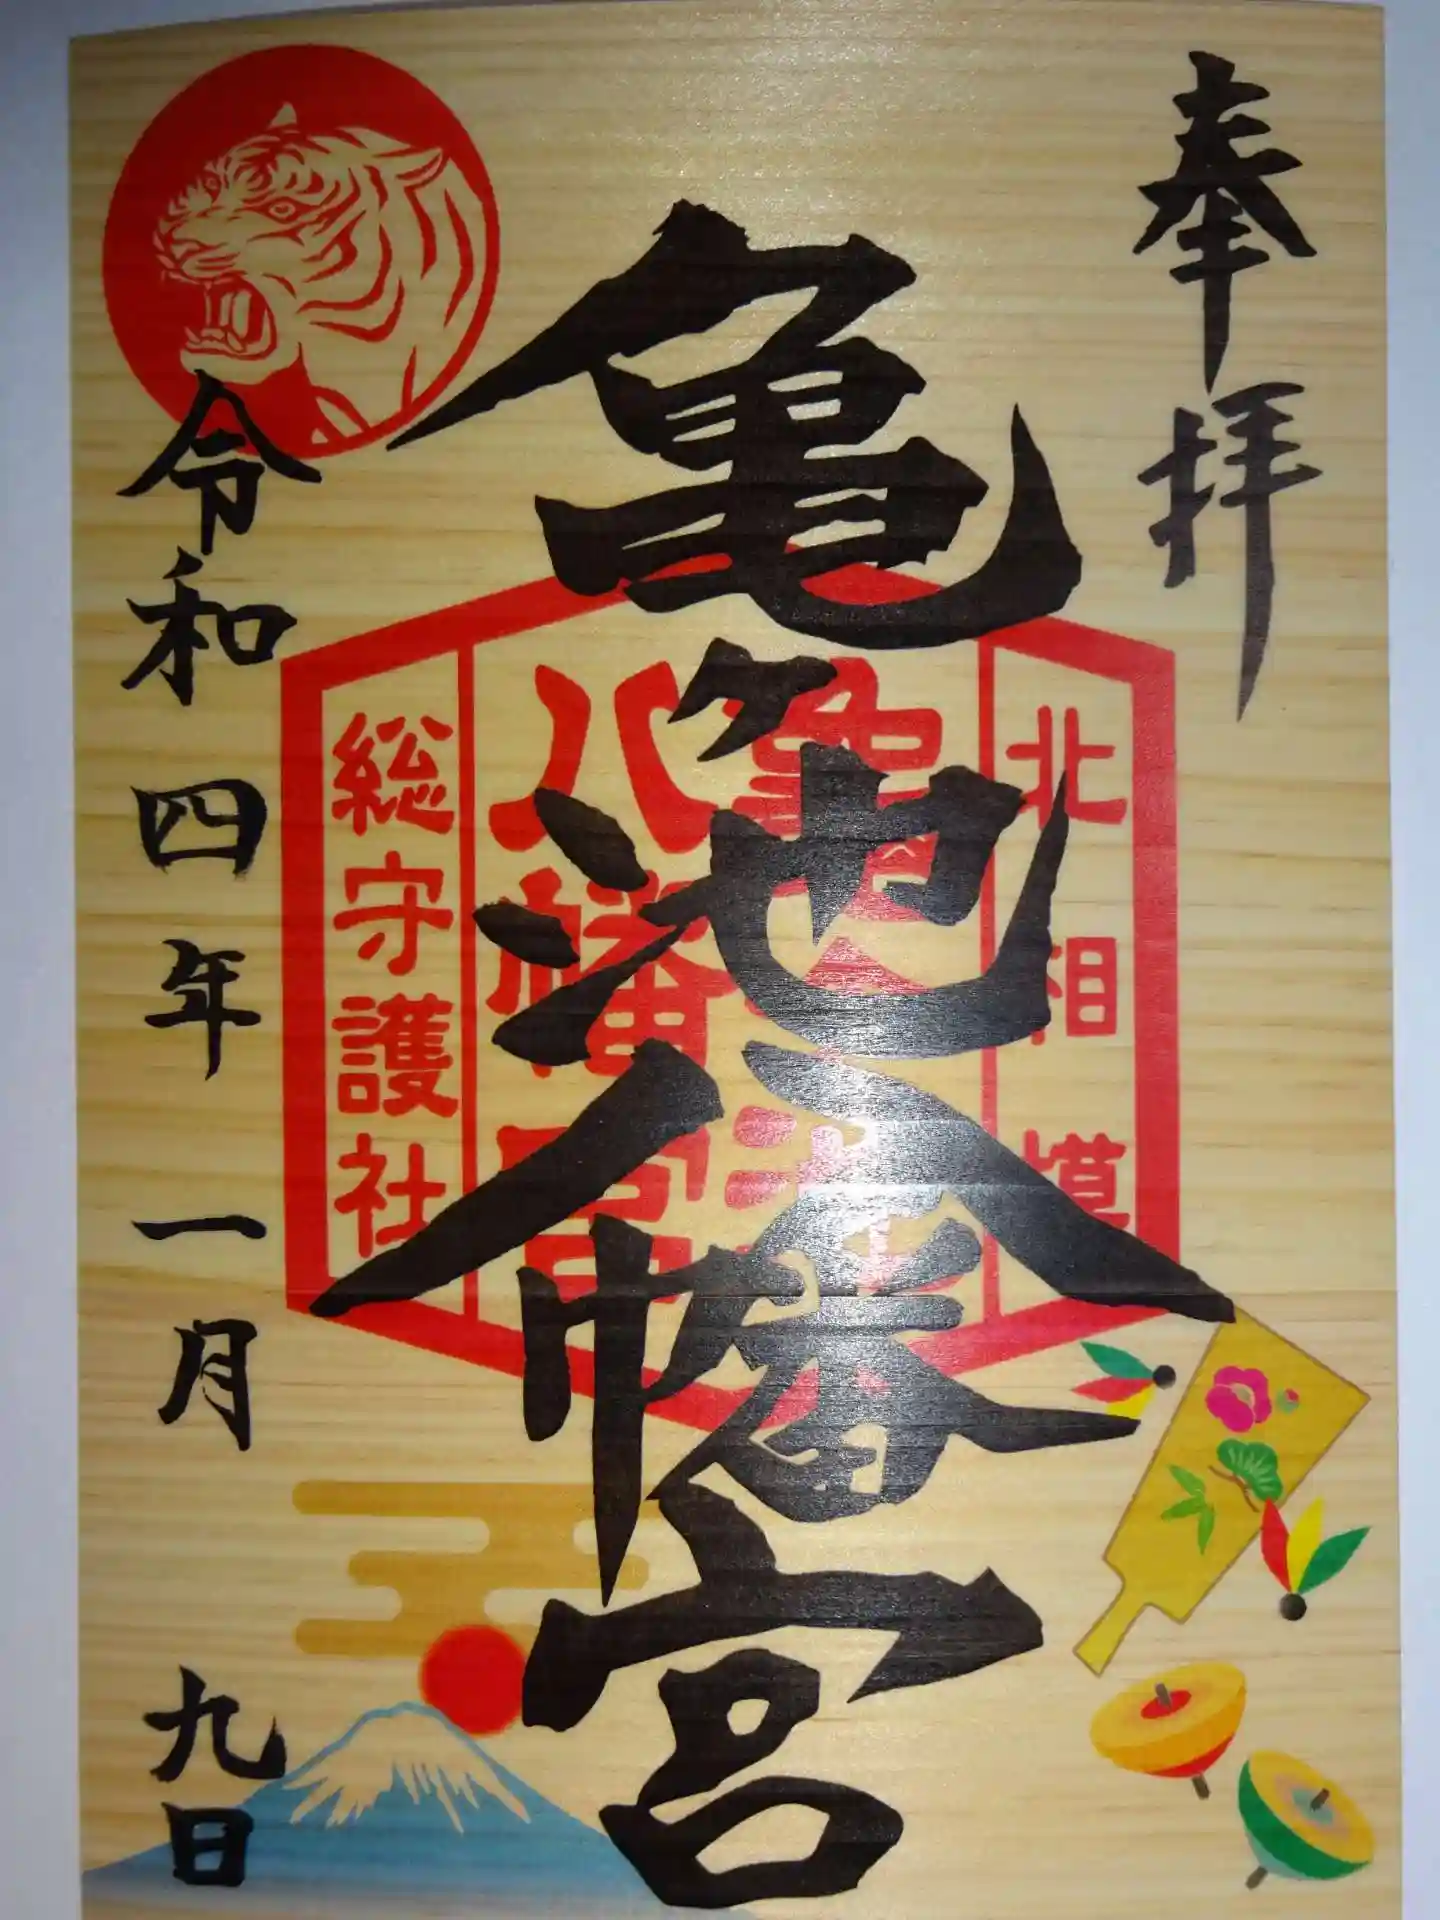 奉拝
北相模
亀ヶ池八幡宮
亀ヶ池
八幡宮
総守護社
令和四年一月九日